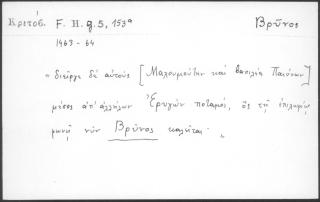 Κριτόβ. F. H. g. 5, 153a Βρῦνος
1463-64
"διεῖργε δὲ αὐτοὺς [Μαχουμούτην καὶ βασιλέα Παιόνων]
μέσος ἀπ' ἀλλήλων Ἐρυγὼν ποταμός, ὃς τῇ ἐπιχωρίῳ
φωνῇ νῦν Βρῦνος καλεῖται."